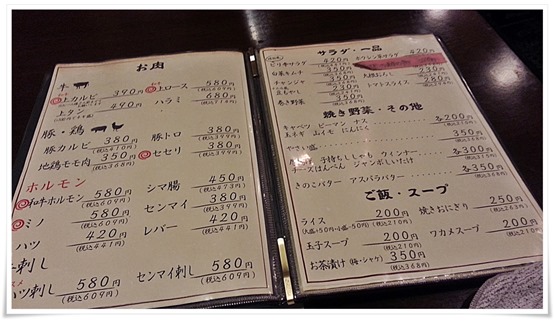 お肉
牛
上カルビ 390円
上タン 490円
上ロース 580円
(税込609円)
ハラミ 680円
豚・鶏
豚カルビ 380円
地鶏モモ肉 350円
(税込368円)
豚トロ 380円
(税込399円)
セセリ 380円
(税込399円)
ホルモン
和牛ホルモン 580円
(税込609円)
ミノ 580円
(税込609円)
ハツ 420円
(税込441円)
シマ腸 450円
(税込473円)
センマイ 380円
(税込399円)
レバー 420円
(税込441円)
刺し
ハツ刺し 580円
(税込609円)
センマイ刺し 580円
(税込609円)
サラダ・一品
ピリ辛サラダ 420円
白菜キムチ
チャンジャ 350円
巻き野菜 350円
チョレギサラダ 420円
トマトスライス 280円
焼き野菜・その他
キャベツ ピーマン ナス
玉ネギ 山イモ にんにく 各200円
(税込210円)
やさい盛 350円
子持ちししゃも ウィンナー
チーズはんぺん ジャンボしいたけ 各300円
きのこバター アスパラバター 各350円
(税込368円)
ご飯・スープ
ライス 200円
(大盛り50円・小盛-50円) (税込210円)
玉子スープ 200円
(税込210円)
お茶漬け (梅・シャケ) 350円
(税込368円)
焼きおにぎり 250円
(税込263円)
ワカメスープ 200円
(税込210円)